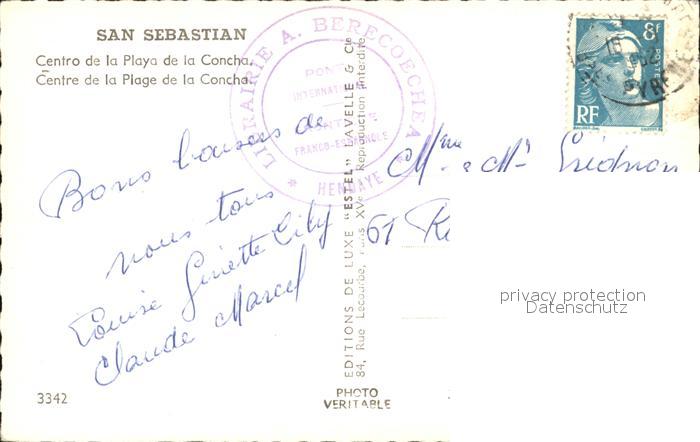 SAN SEBASTIAN
Centro de la Playa de la Concha.
Centre de la Plage de la Concha.
LIBRAIRIE A. BERECOECHEA
PONT
INTERNATIONAL
FRANCO-ESPAGNOLE
* HENDAYE *
8F
POSTES
RF
Bons baisers de
nous tous
Louise Ginette City
Claude Marcel
EDITIONS DE LUXE "ESTEL" LAVELLE & Cie
84, Rue Lecourbe, Paris XVe Reproduction interdite
Mme & Mr
61
privacy protection
Datenschutz
3342
PHOTO
VERITABLE